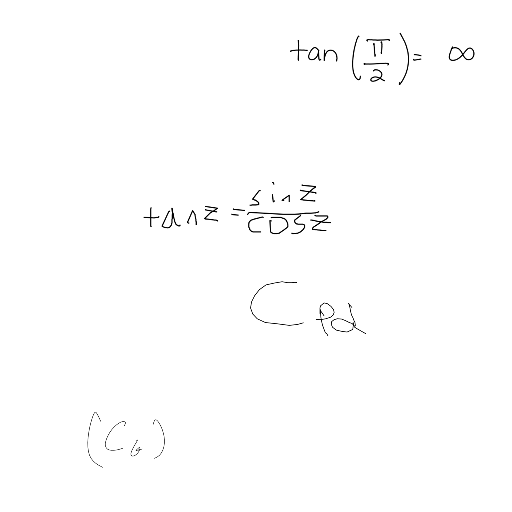 tan(π/2) = ∞
tan z = sin z / cos z
C_Pd
(C_6)